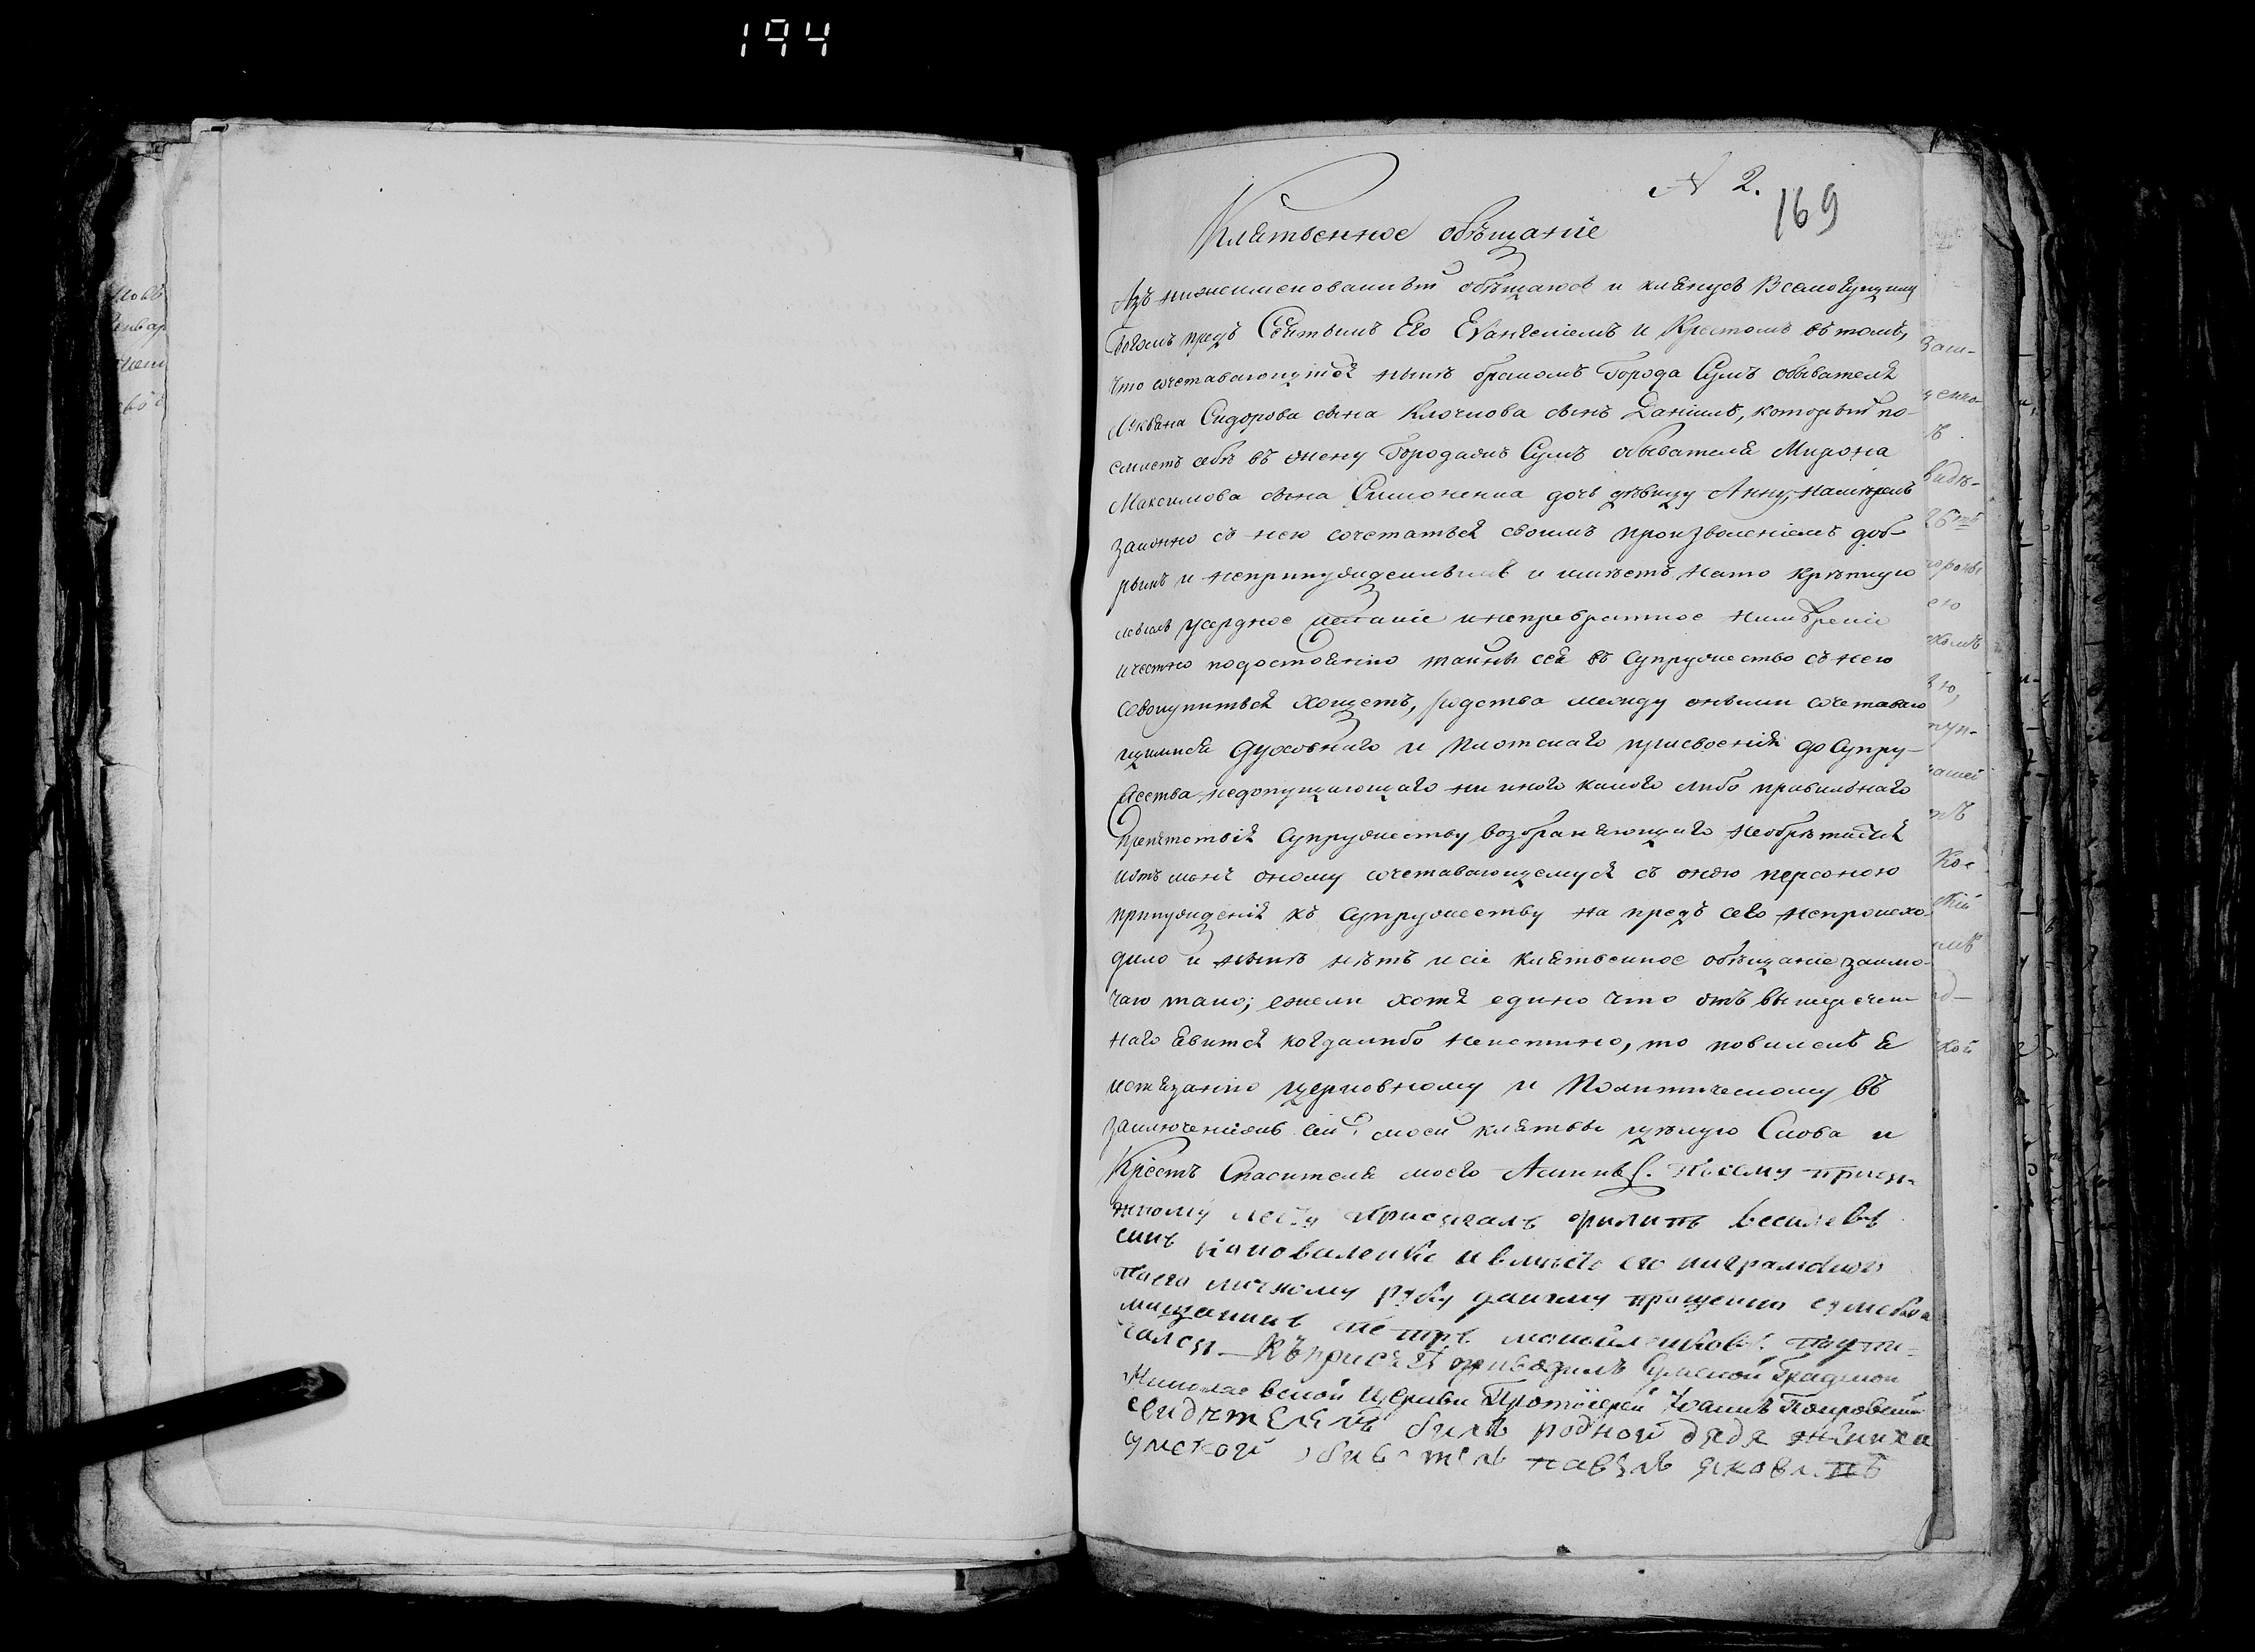 194
N 2.
169
Клятвенное обѣщаніе
Азъ нижеименованный обѣщаюсь и клянусь Всемогущимъ
богомъ предъ Святымъ Его Евангеліемъ и Крестомъ въ томъ,
что сочетавающійся нынѣ бракомъ Города Сумъ обывателя
Сидорова сына Клочкова сынъ Даніилъ, который по-
емлетъ себѣ въ жену Города Сумъ обывателя Мирона
Максимова сына Симоненка дочь дѣвицу Анну, намѣренъ
законно съ нею сочетаться своимъ произволеніемъ доб-
рымъ и непринужденнымъ и имѣетъ на то крѣпкую
мысль усердное желаніе и непревратное намѣреніе
и честно по достоянію тайны сея въ Супружество съ нею
совокупиться хощетъ, родства между оными сочетаваю
щимися духовнаго и плотскаго присвоенія до Супру-
жества недопущающаго ни иного какого либо правильнаго
препятствія Супружеству возбраняющаго необрѣтается
и отъ мене оному сочетавающемуся съ оною персоною
принужденія къ Супружеству на предъ сего непроисхо-
дило и нынѣ нѣтъ и сіе клятвенное обѣщаніе заклю-
чаю тако; ежели хотя едино что отъ вышеречен-
наго явится когдалибо неистино, то повиненъ я
истязанію церковному и Политическому въ
заключеніе сей моей клятвы цѣлую Слова и
Крестъ Спасителя моего Аминь. Посему присяж-
ному листу присягалъ филипъ васильевъ
синъ Коноваленко и вместо его
по его личному рукоданному прошению
мищанинъ петръ подпи-
сался — Къ присягѣ приводилъ Сумской Градской
Николаевской Церкви Протоіерей Іоаннъ
свидѣтелемъ былъ родной дядя жениха
сумской обиватель павелъ